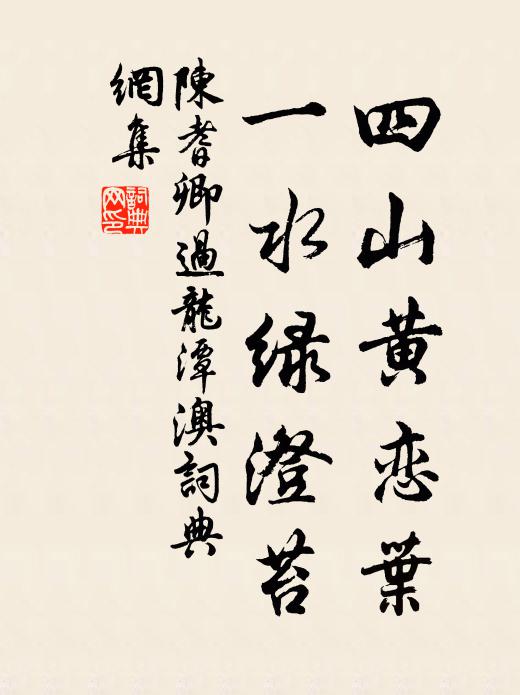 四山黄恋葉
一水绿澄苔
陳耆卿過龍潭澳詞典
網集
詞典
网印